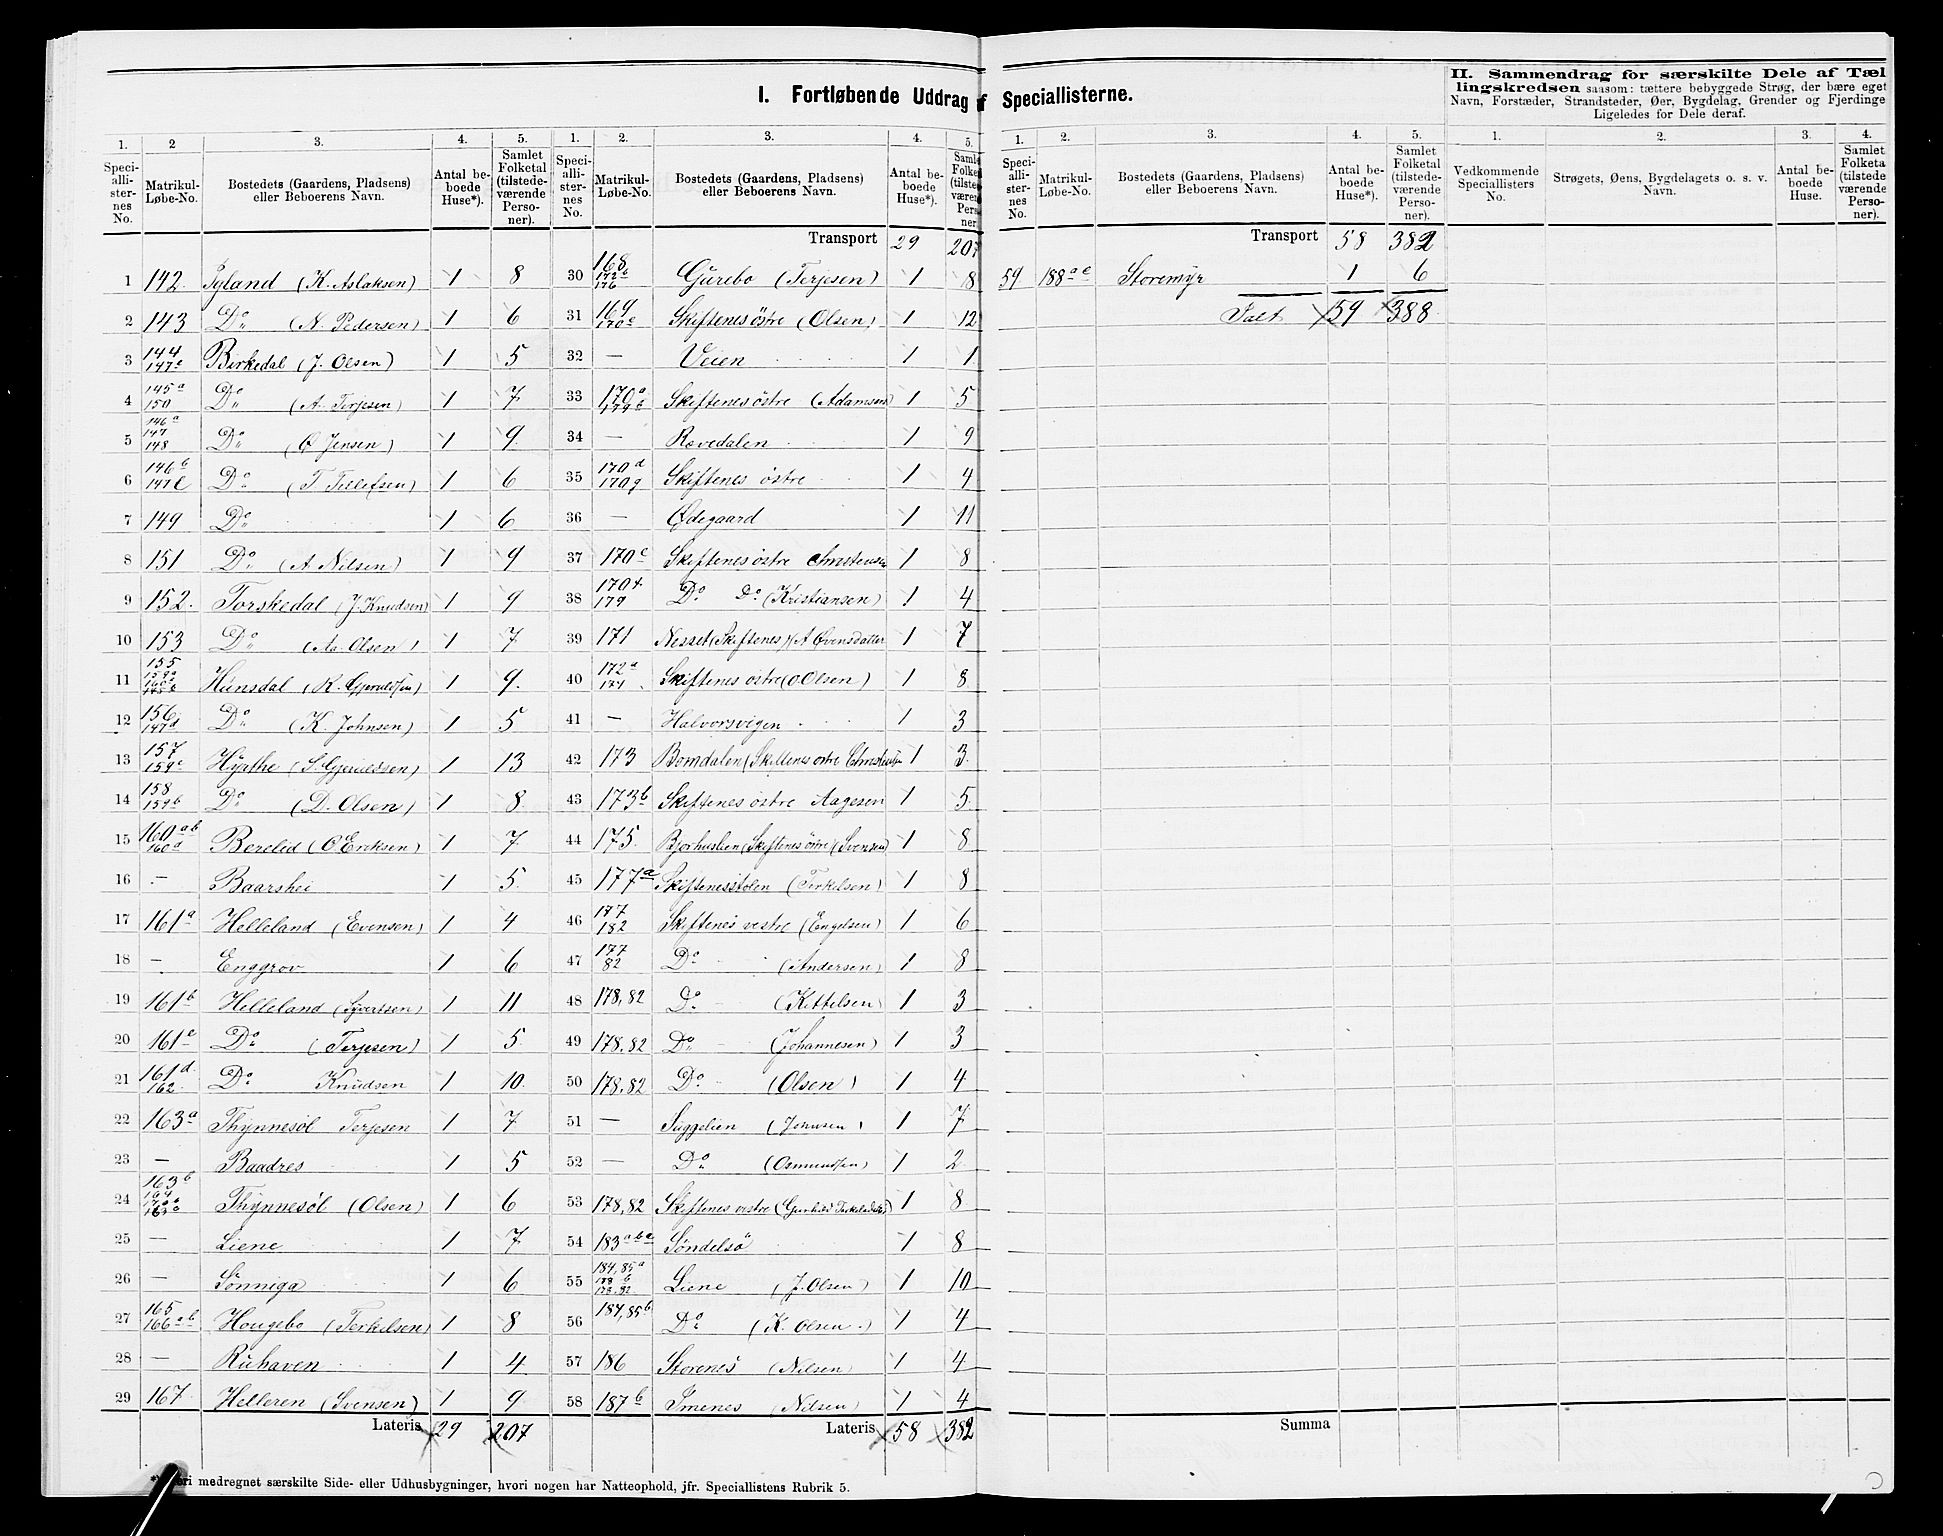 I. Fortløbende Uddrag af Speciallisterne.
II. Sammendrag for særskilte Dele af Tæl
lingskredsen saasom: tættere bebyggede Strøg, der bære eget
Navn, Forstæder, Strandsteder, Øer, Bygdelag, Grender og Fjerdinge
Ligeledes for Dele deraf.
1. 2 3. 4. 5.
Speci-alli-ster-nes No. Matrikul-Løbe-No. Bostedets (Gaardens, Pladsens) eller Beboerens Navn. Antal be-boede Huse*). Samlet Folketal (tilstede-værende Perso-ner).
1 142. Tyland (K. Aslaksen) 1 8
2 143 Do (N. Pedersen) 1 6
3 144 147c Birkedal (J. Olsen) 1 5
4 145a 150 Do (A. Terjesen) 1 7
5 146a 147 148 Do (O Jensen) 1 9
6 146b 147e Do (T Tellefsen) 1 6
7 149 Do 1 6
8 151 Do (A Nilsen) 1 9
9 152. Torskedal (J. Knudsen) 1 9
10 153 Do (Aa. Olsen) 1 7
11 155 Hunsdal (K. Gjeruldsen) 1 9.
12 156 147d Do (K. Johnsen) 1 5
13 157 159c Hypthe (S. Gjeruldsen) 1 13
14 158 159b Do (D. Olsen) 1 8.
15 160ab 160d Berelid (O Eriksen) 1 7
16 — Baarshei 1 5.
17 161a Helleland (Evensen) 1 4
18 - Enggrov 1 6
19 161b Helleland (Syvertsen) 1 11
20 161c Do (Terjesen) 1 5.
21 161d. 162. Do Knudsen 1 10.
22 163a Thynnesøl Terjesen 1 7
23 — Baadres 1 5
24 163b 164 Thynnesøl (Olsen) 1 6
25 — Liene 1 7
26 — Sønniga 1 6
27 165 166ab Hougebo (Terkelsen) 1 8
28 — Ruhaven 1 4
29 167 Helleren (Svensen) 1 9
Lateris 29 207
1. 2. 3. 4. 5.
Speci-alli-ster-nes No. Matrikul-Løbe-No. Bostedets (Gaardens, Pladsens) eller Beboerens Navn. Antal be-boede Huse*).
Transport 29 207
30 168 172b 176 Gurebo (Terjesen) 1 8
31 169 170c Skiftenes östre (Olsen) 1 12
32 — Veien 1 1
33 170a 179b Skiftenes östre (Adamsen) 1 5
34 — Rævedalen 1 9
35 170d 170g Skiftenes östre 1 4
36 — Ødegaard 1 11
37 170e Skiftenes östre Christensen 1 8
38 170f. 179 Do Do (Kristiansen) 1 4
39 171 Nesset (Skiftenes) (A Evensdatter 1 7
40 172a 174 Skiftenes ostre (O. Olsen) 1 8
41 — Halvorsvigen 1 3
42 173 Bomdalen (Skiftenes ostre Christensen 1 3.
43 173b Skiftenes ostre Aagesen 1 5
44 175. Bjorhuslien (Skiftenes östre) (Svensen) 1 8
45 177a Skiftenesstolen (Terkelsen) 1 8
46 177 182 Skiftenes vestre (Engelsen) 1 6
47 177 82 Do (Andersen) 1 8
48 178,82 Do (Kittelsen) 1 3
49 178,82 Do (Johannesen) 1 3
50 178,82 Do (Olsen) 1 4
51 — Suggelien (Johnsen) 1 7
52 — Do (Osmundsen) 1 2
53 178,82 Skiftenes vestre (Gunhild Terkelsdatter) 1 8
54 183abc Söndelsö 1 8
55 184,85a 178 b 178,82 Liene (J. Olsen) 1 10
56 184,85b Do (K. Olsen) 1 4
57 186 Storenes (Nilsen) 1 4
58 187b Imenes (Nilsen) 1 4
Lateris 58 382
*) Heri medregnet særskilte Side- eller Udhusbygninger, hvori nogen har Natteophold, jfr. Speciallistens Rubrik 5.
1. 2. 3. 4. 5.
Speci-alli-ster-nes No. Matrikul-Løbe-No. Bostedets (Gaardens, Pladsens) eller Beboerens Navn. Antal be-boede Huse*). Samlet Folketal (tilstede-værende Perso-ner).
Transport 58 382
59 188ac Storemyr 1 6
Ialt 59 388
Summa
1. 2. 3. 4.
Vedkommende Speciallisters No. Strøgets, Øens, Bygdelagets o. s. v. Navn. Antal be-boede Huse. Samlet Folketa (tilstede værende Perso-ner).